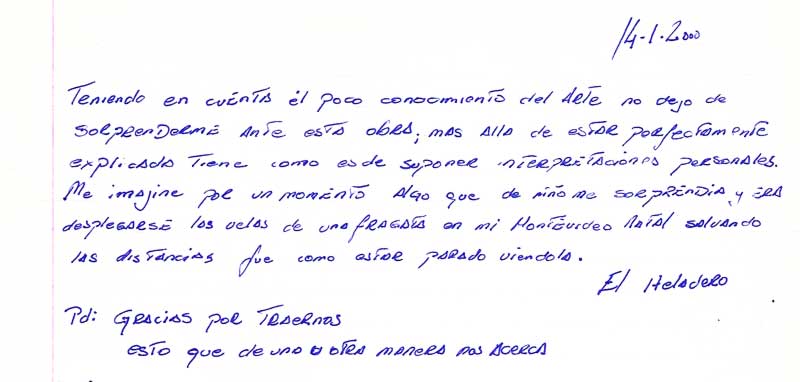 14-1-2000
Teniendo en cuénta él poco conocimiento del Arte no dejo de
sorprenderme ante esta obra; mas alla de estar porfectamente
explicada tiene como es de suponer interpretaciones personales.
Me imajine por un momento algo que de niño me sorprendia, y era
desplegarse las velas de una fragata en mi Montevideo natal salvando
las distancias fue como estar parado viendola.
El Heladero
Pd: Gracias por traernos
esto que de una u otra manera nos acerca